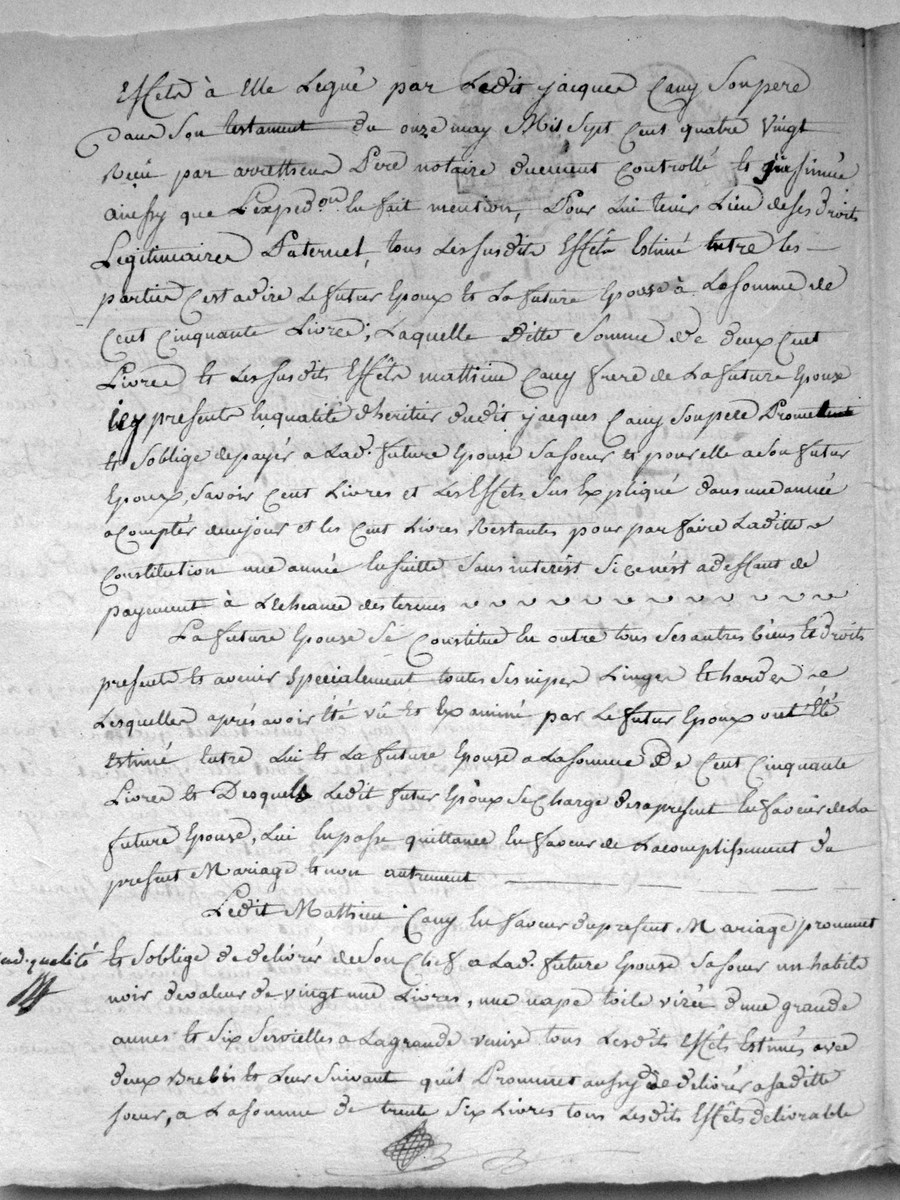 Effets à Elle Legué par Ledit jacques Cauy Son pere
dans Son testament du onze may Mil Sept Cent quatre vingt
Reçu par notaire duement Controllé et insinué
ainsy que L'exped.on en fait mention, Pour Lui tenir Lieu de ses droits
Legitimaires Paternel, tous Les susdits Effets Estimé Entre les
parties C'est adire Le futur Epoux et La future Epouse à La somme de
Cent Cinquante Livres, Laquelle ditte Somme de deux Cent
Livres et Les susdits Effets matthieu Cauy frere de La future Epouse
icy present En qualité d'heritier dudit jacques Cauy Son pere Promet
et S'oblige de payér a Lad. future Epouse Sa soeur et pour elle a Son futur
Epoux, Savoir Cent Livres et Les Effets Sus Expliqué dans une année
a Compter de ce jour et les Cent Livres Restantes pour parfaire Laditte
Constitution une année En Suitte Sans interést Si ce nést a deffaut de
payement à L'Echeance des termes
La future Epouse Se Constitue En outre tous Ses autres biens et droits
presents et avenir Spécialement toutes Ses nipes Linges et hardes
Lesquelles aprés avoir été vû et Examiné par Le futur Epoux ont Eté
Estimé Entre Lui et La future Epouse a La somme de Cent Cinquante
Livres et Desquels Ledit futur Epoux Se Charge des a present En faveur de La
future Epouse, Lui En passe quittance En faveur de L'acomplissement du
present Mariage et non autrement
Ledit Mathieu Cauy En faveur du present Mariage prommet
aud. qualité et S'oblige de delivrér de Son Chef a Lad. future Epouse Sa soeur un habit
noir de valeur de vingt une Livres, une nape toile d'une grande
aunes et Six Servielles a La grande venise tous Lesdits Effets Estimés avec
deux Brebis et Leur Suivant quil Prommet aussy de delivrér a Saditte
soeur, a La somme de trente Six Livres tous Lesdits Effets delivrable